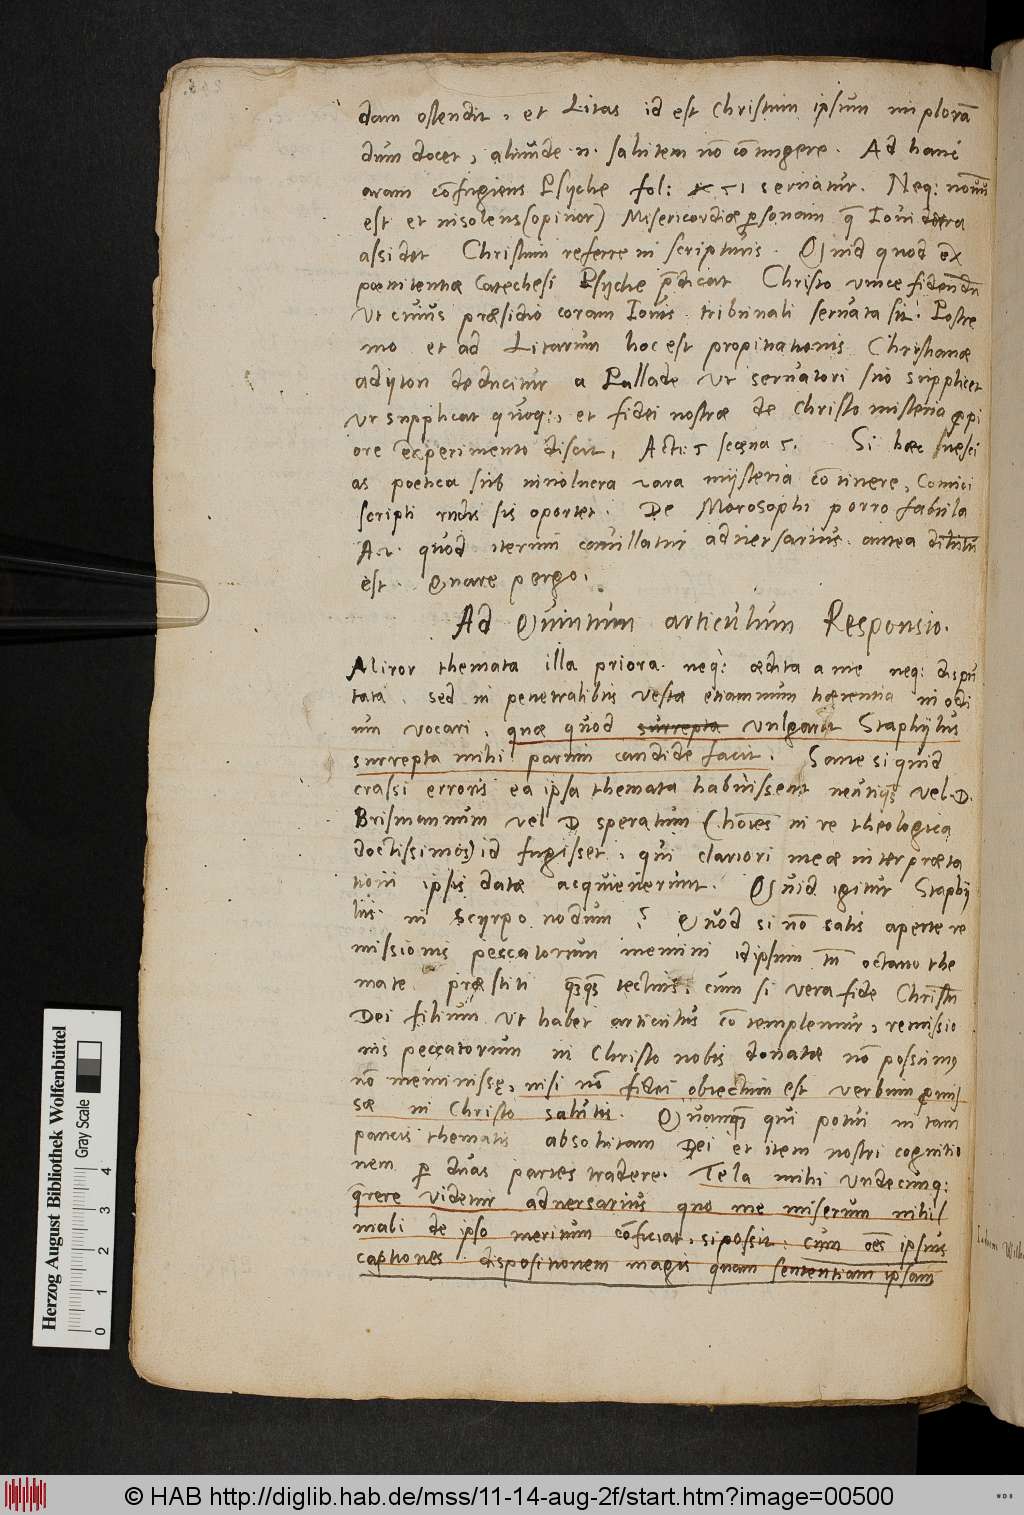 dam ostendit, et Litas id est Christum ipsum implorā
dum docet, aliunde .n. salutem nō cōtingere. Ad hanc
aram cōfugiens Psyche fol: seruatur. Neq: nouū
est et insolens (opinor) Misericordiæ p̱sonam q̄ Ioui dextra
assidet Christum referre in scripturis. Quid quod ex
pœnitentiæ Catechesi Psyche p̄dicat Christo vnice fidendū
vt cuius præsidio coram Iouis tribunali seruata sit. Postre
mo et ad Litarum hoc est propitiationis Christianæ
adyton deducitur a Pallade vt seruatori suo supplicet
vt supplicat quoq:, et fidei nostræ de Christo misteria
ore experimento discit, Act: 5 scæna 5. Si hæc nesci
as poetica sub inuolucra vara mysteria cōtinere, Comici
scripti rudis sis oportet. De Morosophi porro fabula
quod iterum cauillatur aduersarius antea dilutū
est. Quare pergo.
Ad Quintum articulum Responsio.
Miror themata illa priora neq: ædita a me neq: dispu
tata, sed in penetralibus vestæ etiamnum hærentia in
um vocari, quæ quod surrepta vulgauit Staphylus
surrepta mihi parum candide facit. Sane si quid
crassi erroris ea ipsa themata habuissent neutiq̄ vel D.
Brismannum vel D speratum (hōīes in re theologica
doctissimos) id fugisset, qui clariori meæ interpræta
tioni ipsis datæ acquieuerunt. Quid igitur Staphy
lus in Scyrpo nodum ? Quod si nō satis aperte re
missionis peccatorum memini idipsum tn̄ octauo the
mate præstiti q̄q̄ tectius, cum si vera fide Christū
Dei filium vt habet articulus cōtemplemur, remissio
nis peccatorum in Christo nobis donatæ nō possimus
nō meminisse, nisi nō fidei obiectum est verbum ꝓmis
sæ in Christo salutis. Quamq̄ qui potui in tam
paucis thematis absolutam Dei et item nostri cognitio
nem ꝑ duas partes tradere. Tela mihi vndecunq:
q̄rere videtur aduersarius quo me miserum nihil
mali de ipso meritum cōficiat, si possit: cum oēs ipsius
captiones dispositionem magis quam sententiam ipsam
Herzog August Bibliothek Wolfenbüttel
Gray Scale
0 1 2 3 4
© HAB http://diglib.hab.de/mss/11-14-aug-2f/start.htm?image=00500